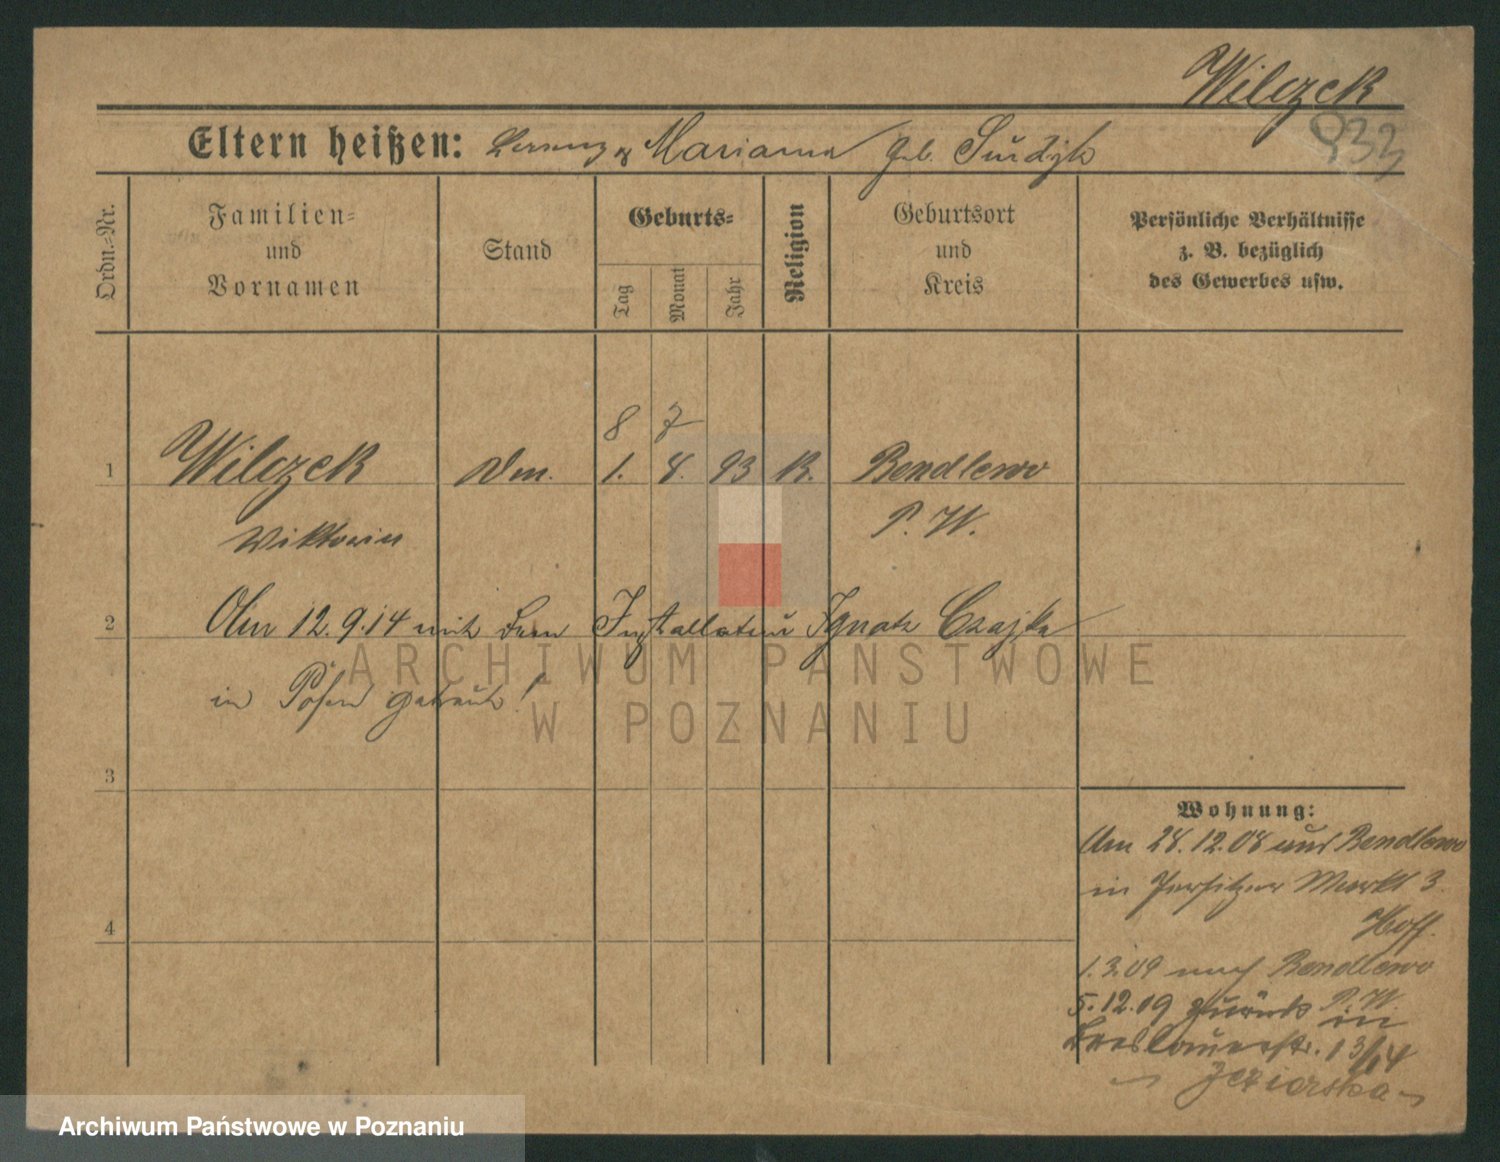 Wilczek
932
Eltern heißen: Lorenz & Marianna geb. Surdyk
Ordn.-Nr.
Familien-
und
Vornamen
Stand
Geburts-
Tag
Monat
Jahr
Religion
Geburtsort
und
Kreis
Persönliche Verhältnisse
z. B. bezüglich
des Gewerbes usw.
8 7
1 Wilczek Dm. 1. 4. 93 K. Bendlewo
Viktoria P. W.
2 Am 12.9.14 mit dem Installateur Ignatz Czajka
in Posen getraut!
3
4
Wohnung:
Am 28.12.08 aus Bendlewo
in Jersitzer Markt 3.
Hoff.
1.3.09 nach Bendlewo
P. W.
5.12.09 zurück in
Breslauerstr. 13/14
Jezierska
ARCHIWUM PAŃSTWOWE
W POZNANIU
Archiwum Państwowe w Poznaniu